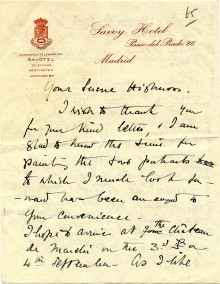 Savoy Hotel
Paseo del Prado 26
Madrid
DIRECCIÓN TELEGRÁFICA
SAVOTEL
TELÉFONOS
Your Serene Highness.
I wish to thank you
for your kind letter, & I am
glad to know the time for
painting the two portraits
to which I much look for-
ward has been arranged to
your convenience.
I hope to arrive at the Château
de Marchais on the 3rd or
4th September. As I like